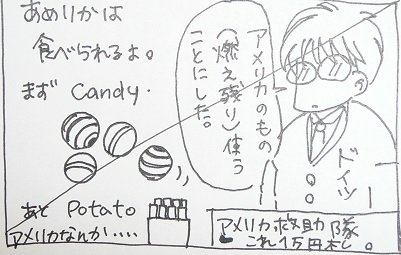 あめりかは
食べられるよ。
まず Candy.
アメリカのもの
(燃え残り)使う
ことにした。
ドイツ
あと Potato
アメリカなんか‥‥
アメリカ救助隊
これ1万円札。